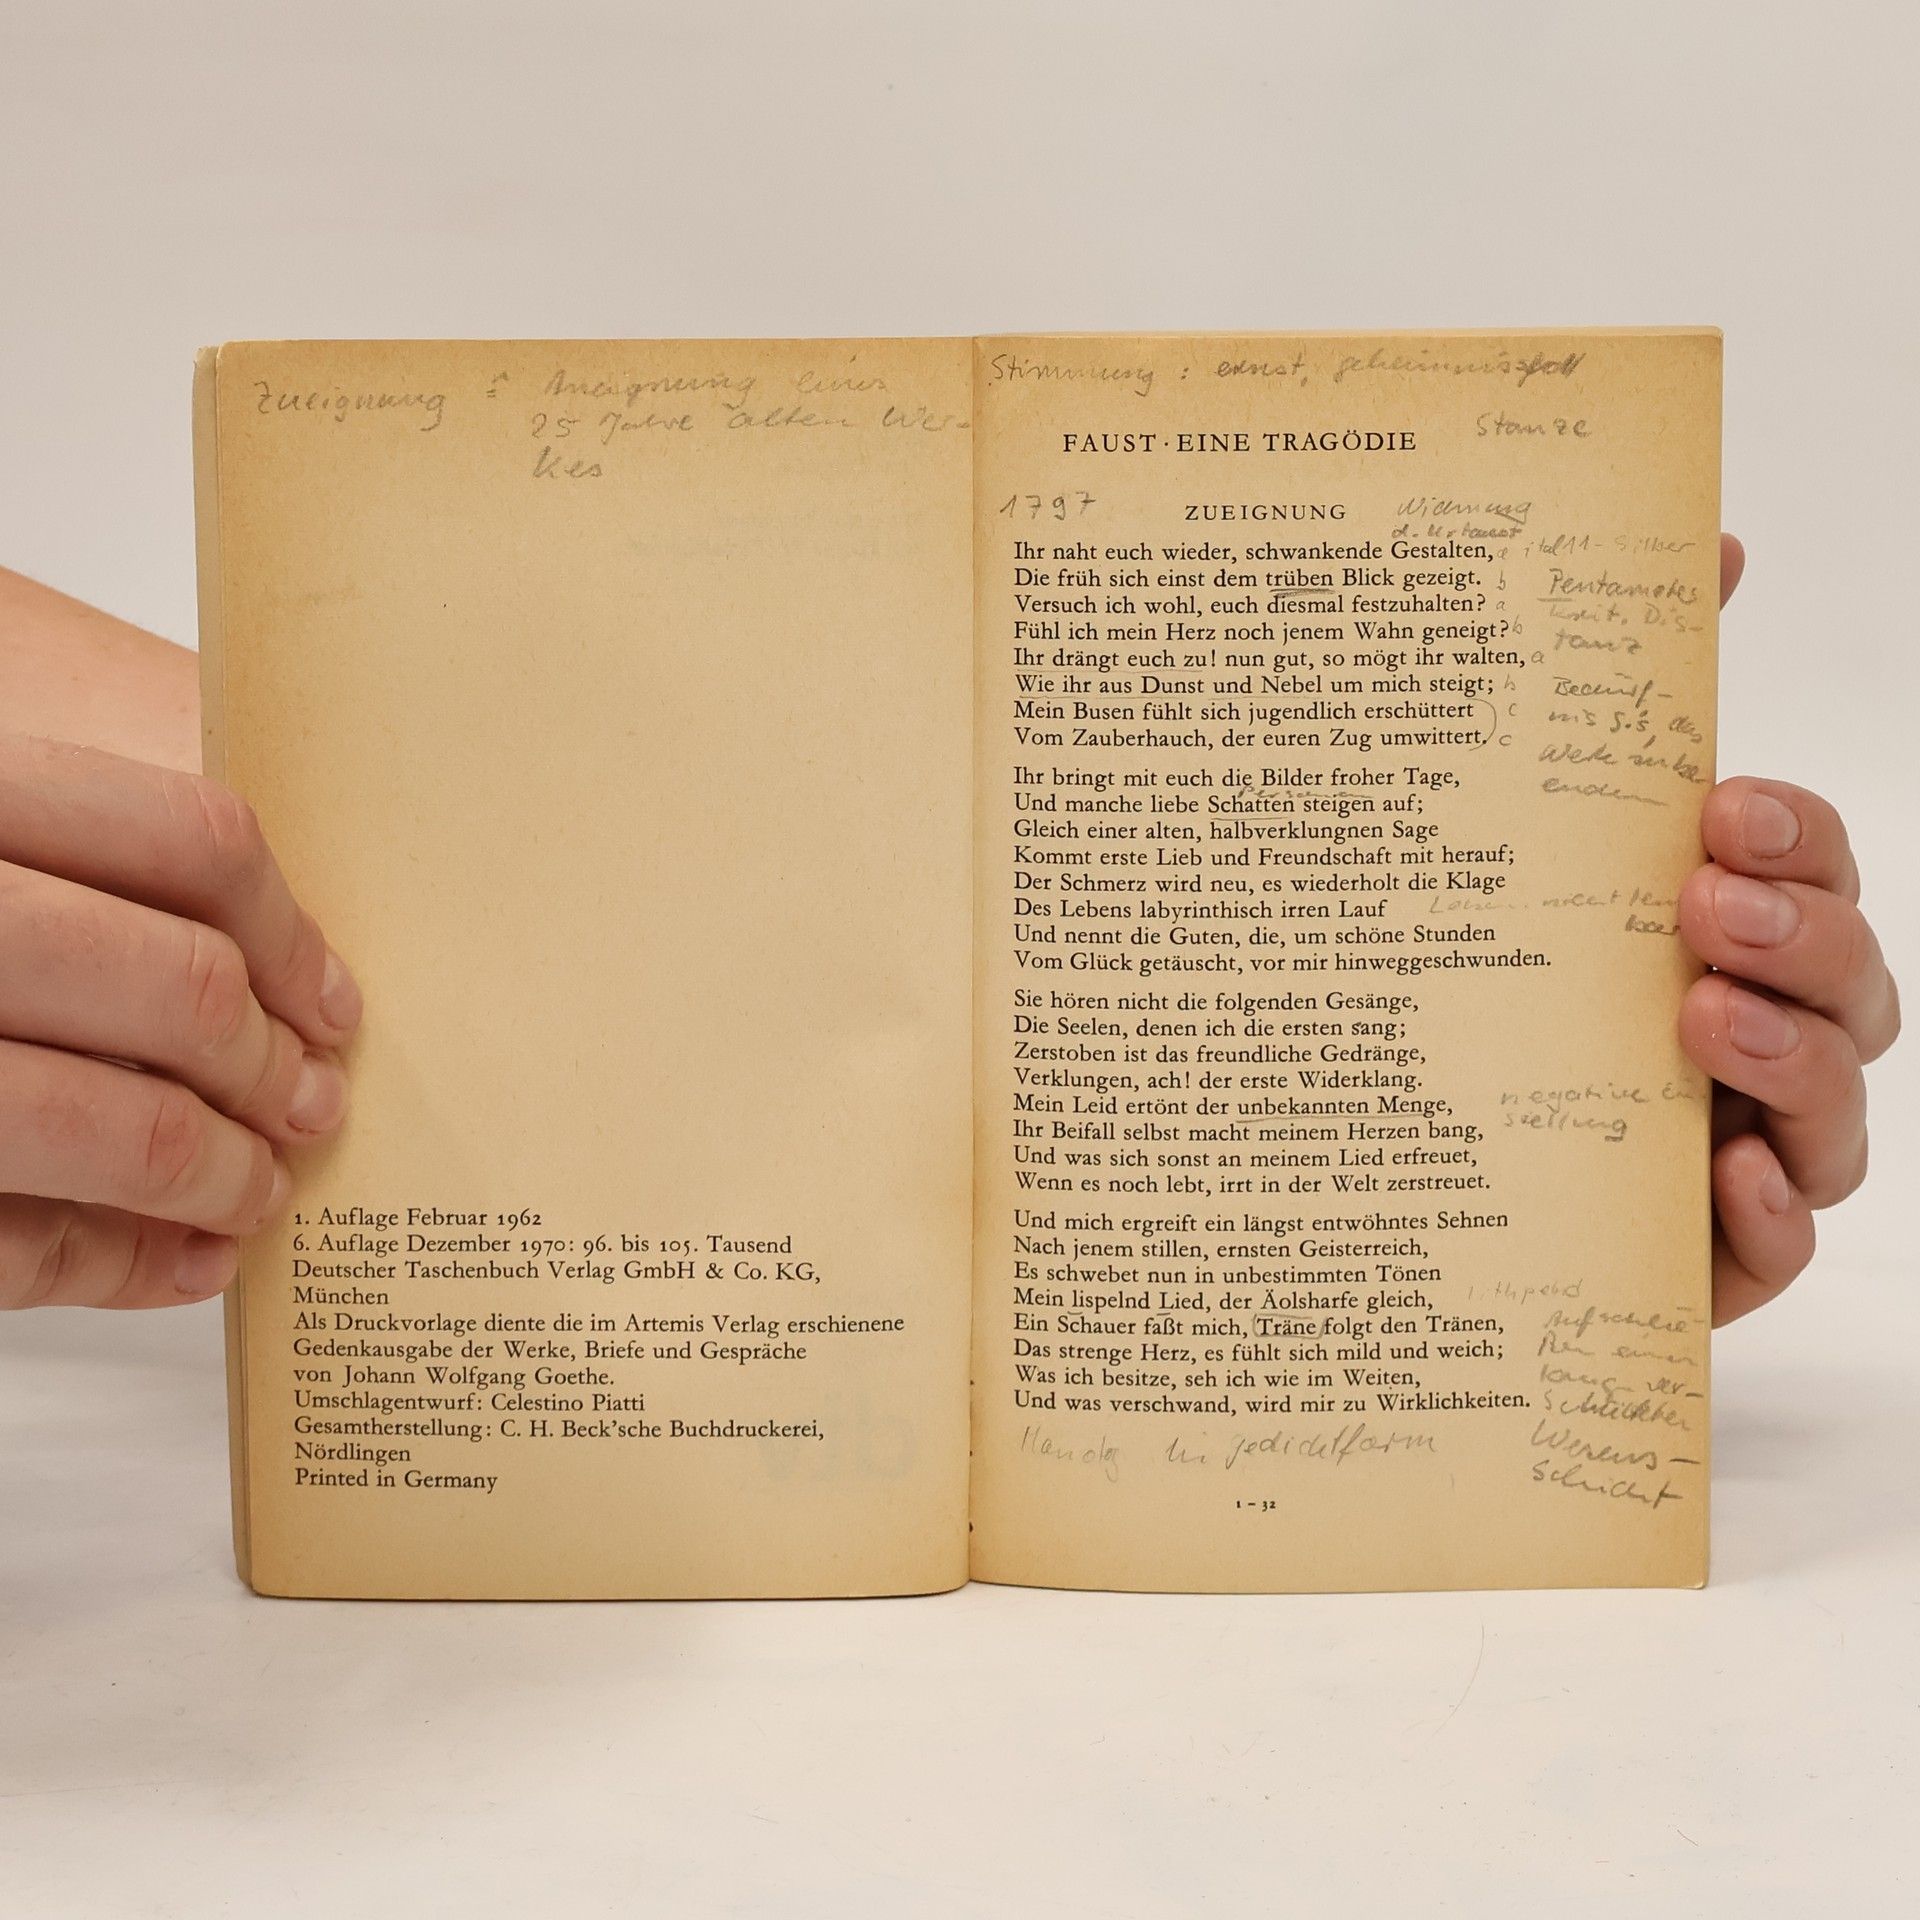 Zueignung = Aneignung eines
25 Jahre alten Wer-
kes
1. Auflage Februar 1962
6. Auflage Dezember 1970: 96. bis 105. Tausend
Deutscher Taschenbuch Verlag GmbH & Co. KG,
München
Als Druckvorlage diente die im Artemis Verlag erschienene
Gedenkausgabe der Werke, Briefe und Gespräche
von Johann Wolfgang Goethe.
Umschlagentwurf: Celestino Piatti
Gesamtherstellung: C. H. Beck'sche Buchdruckerei,
Nördlingen
Printed in Germany
Stimmung: ernst, geheimnisvoll
Stanze
FAUST · EINE TRAGÖDIE
1797 ZUEIGNUNG Widmung
d. Urfaust
Ihr naht euch wieder, schwankende Gestalten, a ital 11-Silber
Die früh sich einst dem trüben Blick gezeigt. b Pentameter
Versuch ich wohl, euch diesmal festzuhalten? a krit. Dis-
Fühl ich mein Herz noch jenem Wahn geneigt? b tanz
Ihr drängt euch zu! nun gut, so mögt ihr walten, a
Wie ihr aus Dunst und Nebel um mich steigt; b Bedürf-
Mein Busen fühlt sich jugendlich erschüttert c nis G.'s, das
Vom Zauberhauch, der euren Zug umwittert. c
enden
Ihr bringt mit euch die Bilder froher Tage,
Personen
Und manche liebe Schatten steigen auf;
Gleich einer alten, halbverklungnen Sage
Kommt erste Lieb und Freundschaft mit herauf;
Der Schmerz wird neu, es wiederholt die Klage
Des Lebens labyrinthisch irren Lauf nicht
bar
Und nennt die Guten, die, um schöne Stunden
Vom Glück getäuscht, vor mir hinweggeschwunden.
Sie hören nicht die folgenden Gesänge,
Die Seelen, denen ich die ersten sang;
Zerstoben ist das freundliche Gedränge,
Verklungen, ach! der erste Widerklang.
Mein Leid ertönt der unbekannten Menge, negative Ein-
Ihr Beifall selbst macht meinem Herzen bang, stellung
Und was sich sonst an meinem Lied erfreuet,
Wenn es noch lebt, irrt in der Welt zerstreuet.
Und mich ergreift ein längst entwöhntes Sehnen
Nach jenem stillen, ernsten Geisterreich,
Es schwebet nun in unbestimmten Tönen
Mein lispelnd Lied, der Äolsharfe gleich,
Ein Schauer faßt mich, Träne folgt den Tränen, Aufschlie-
Das strenge Herz, es fühlt sich mild und weich; ßen einer
Was ich besitze, seh ich wie im Weiten, lang ver-
Und was verschwand, wird mir zu Wirklichkeiten. schütteten
Wesens-
schicht
in Gedichtform
1 – 32